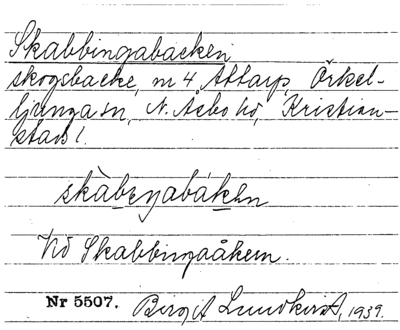 Skabbingabacken
skogsbacke, nr 4 Åttarp, Örkel-
ljunga sn, N. Åsbo hd, Kristian-
stads l.
skàbeŋabáken
Vid Skabbingaåkern.
Nr 5507. Birgit Lundkvist, 1939.